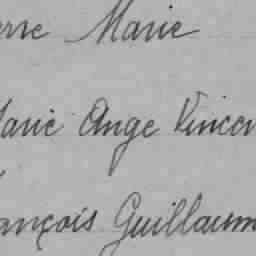 erre Marie
Marie Ange Vincen
ançois Guillaum